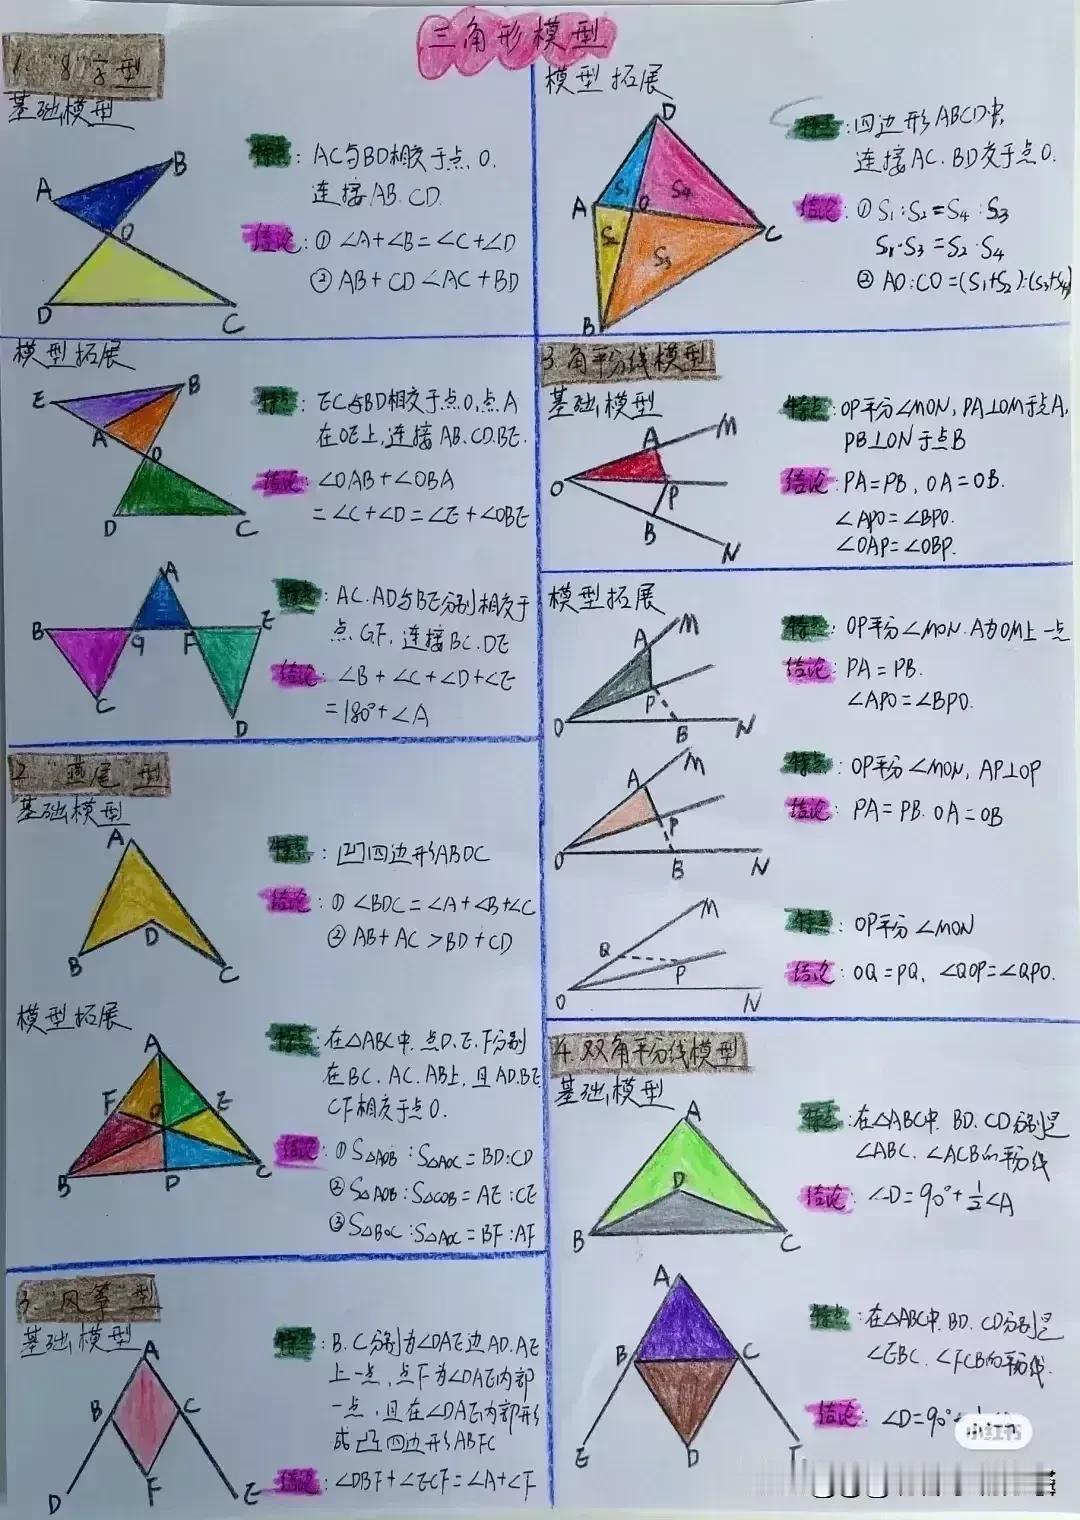 三角形模型
1. "8"字型
基础模型
A
B
O
D
C
特点：AC与BD相交于点O.
连接AB.CD.
结论：① ∠A+∠B=∠C+∠D
② AB+CD<AC+BD
模型拓展
E
B
A
O
D
C
特点：EC与BD相交于点O,点A
在OE上,连接AB.CD.BE.
结论：∠OAB+∠OBA
=∠C+∠D=∠E+∠OBE
A
B
G
F
E
C
D
特点：AC.AD与BE分别相交于
点.G.F.连接BC.DE
结论：∠B+∠C+∠D+∠E
=180°+∠A
2."燕尾"型
基础模型
A
B
D
C
特点：凹四边形ABDC
结论：① ∠BDC=∠A+∠B+∠C
② AB+AC>BD+CD
模型拓展
A
F
O
E
B
D
C
特点：在△ABC中.点D.E.F分别
在BC.AC.AB上,且AD.BE
CF相交于点O.
结论：① S△AOB:S△AOC=BD:CD
② S△AOB:S△COB=AE:CE
③ S△BOC:S△AOC=BF:AF
3."风筝"型
基础模型
A
B
C
F
D
E
特点：B.C分别为∠DAE边AD.AE
上一点,点F为∠DAE内部
一点,且在∠DAE内部形
成凸四边形ABFC
结论：∠DBF+∠ECF=∠A+∠F
模型拓展
D
S1
S4
A
O
C
S2
S3
B
特点：四边形ABCD中,
连接AC.BD交于点O.
结论：① S1:S2=S4:S3
S1·S3=S2·S4
② AO:CO=(S1+S2):(S3+S4)
3.角平分线模型
基础模型
A
M
O
P
B
N
特点：OP平分∠MON,PA⊥OM于点A,
PB⊥ON于点B
结论：PA=PB,OA=OB.
∠APO=∠BPO.
∠OAP=∠OBP.
模型拓展
A
M
P
O
B
N
特点：OP平分∠MON.A为OM上一点
结论：PA=PB.
∠APO=∠BPO.
A
M
P
O
B
N
特点：OP平分∠MON,AP⊥OP
结论：PA=PB.OA=OB
M
Q
P
O
N
特点：OP平分∠MON
结论：OQ=PQ,∠QOP=∠QPO.
4.双角平分线模型
基础模型
A
D
B
C
特点：在△ABC中.BD.CD分别是
∠ABC.∠ACB的平分线
结论：∠D=90°+½∠A
A
B
C
E
D
特点：在△ABC中.BD.CD分别是
∠EBC.∠FCB的平分线.
结论：∠D=90°
小红书